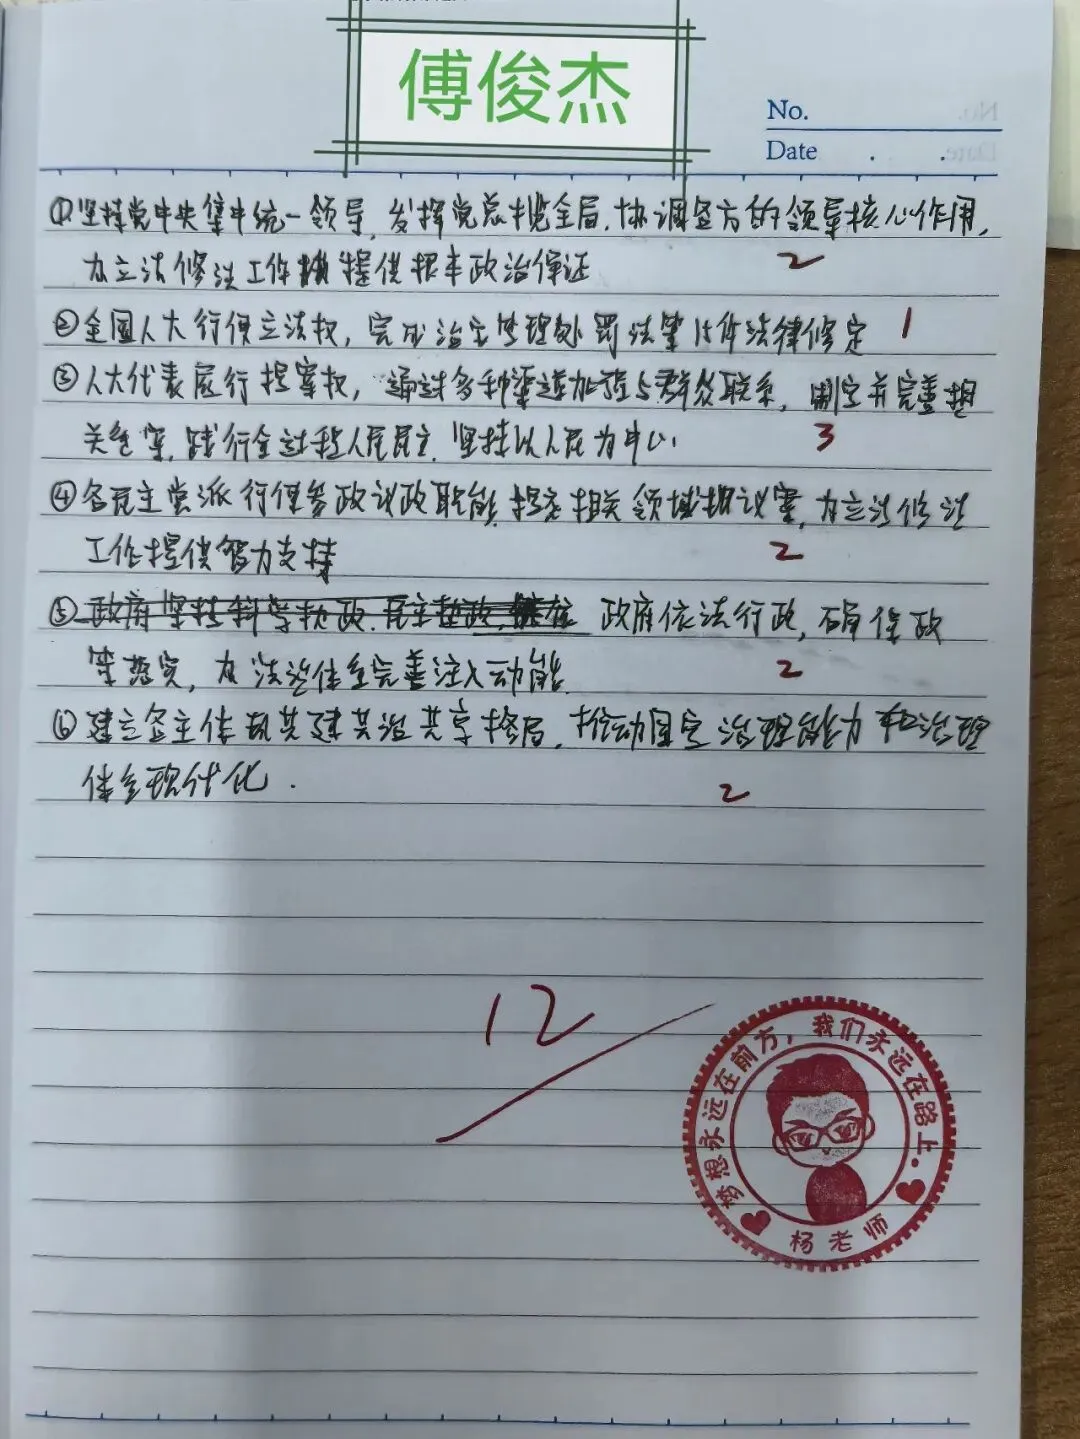 傅俊杰
No.
Date
①坚持党中央集中统一领导,发挥党总揽全局,协调各方的领导核心作用,
为立法修法工作提供根本政治保证
2
②全国人大行使立法权,完成治安管理处罚法等15件法律修定
1
③人大代表履行提案权,通过多种渠道加强与群众联系,制定并完善相
关红案,践行全过程人民民主.坚持以人民为中心
3
④各民主党派行使参政议政职能,提交相关领域提议案,为立法修法
工作提供智力支持
2
⑤政府坚持科学执政.民主执政 政府依法行政,确保政
策落实,为法治体系完善注入动能.
2
⑥建立各主体间共建共治共享格局,推动国家治理能力和治理
体系现代化.
2
12
梦想永远在前方,我们永远在路上.
杨老师